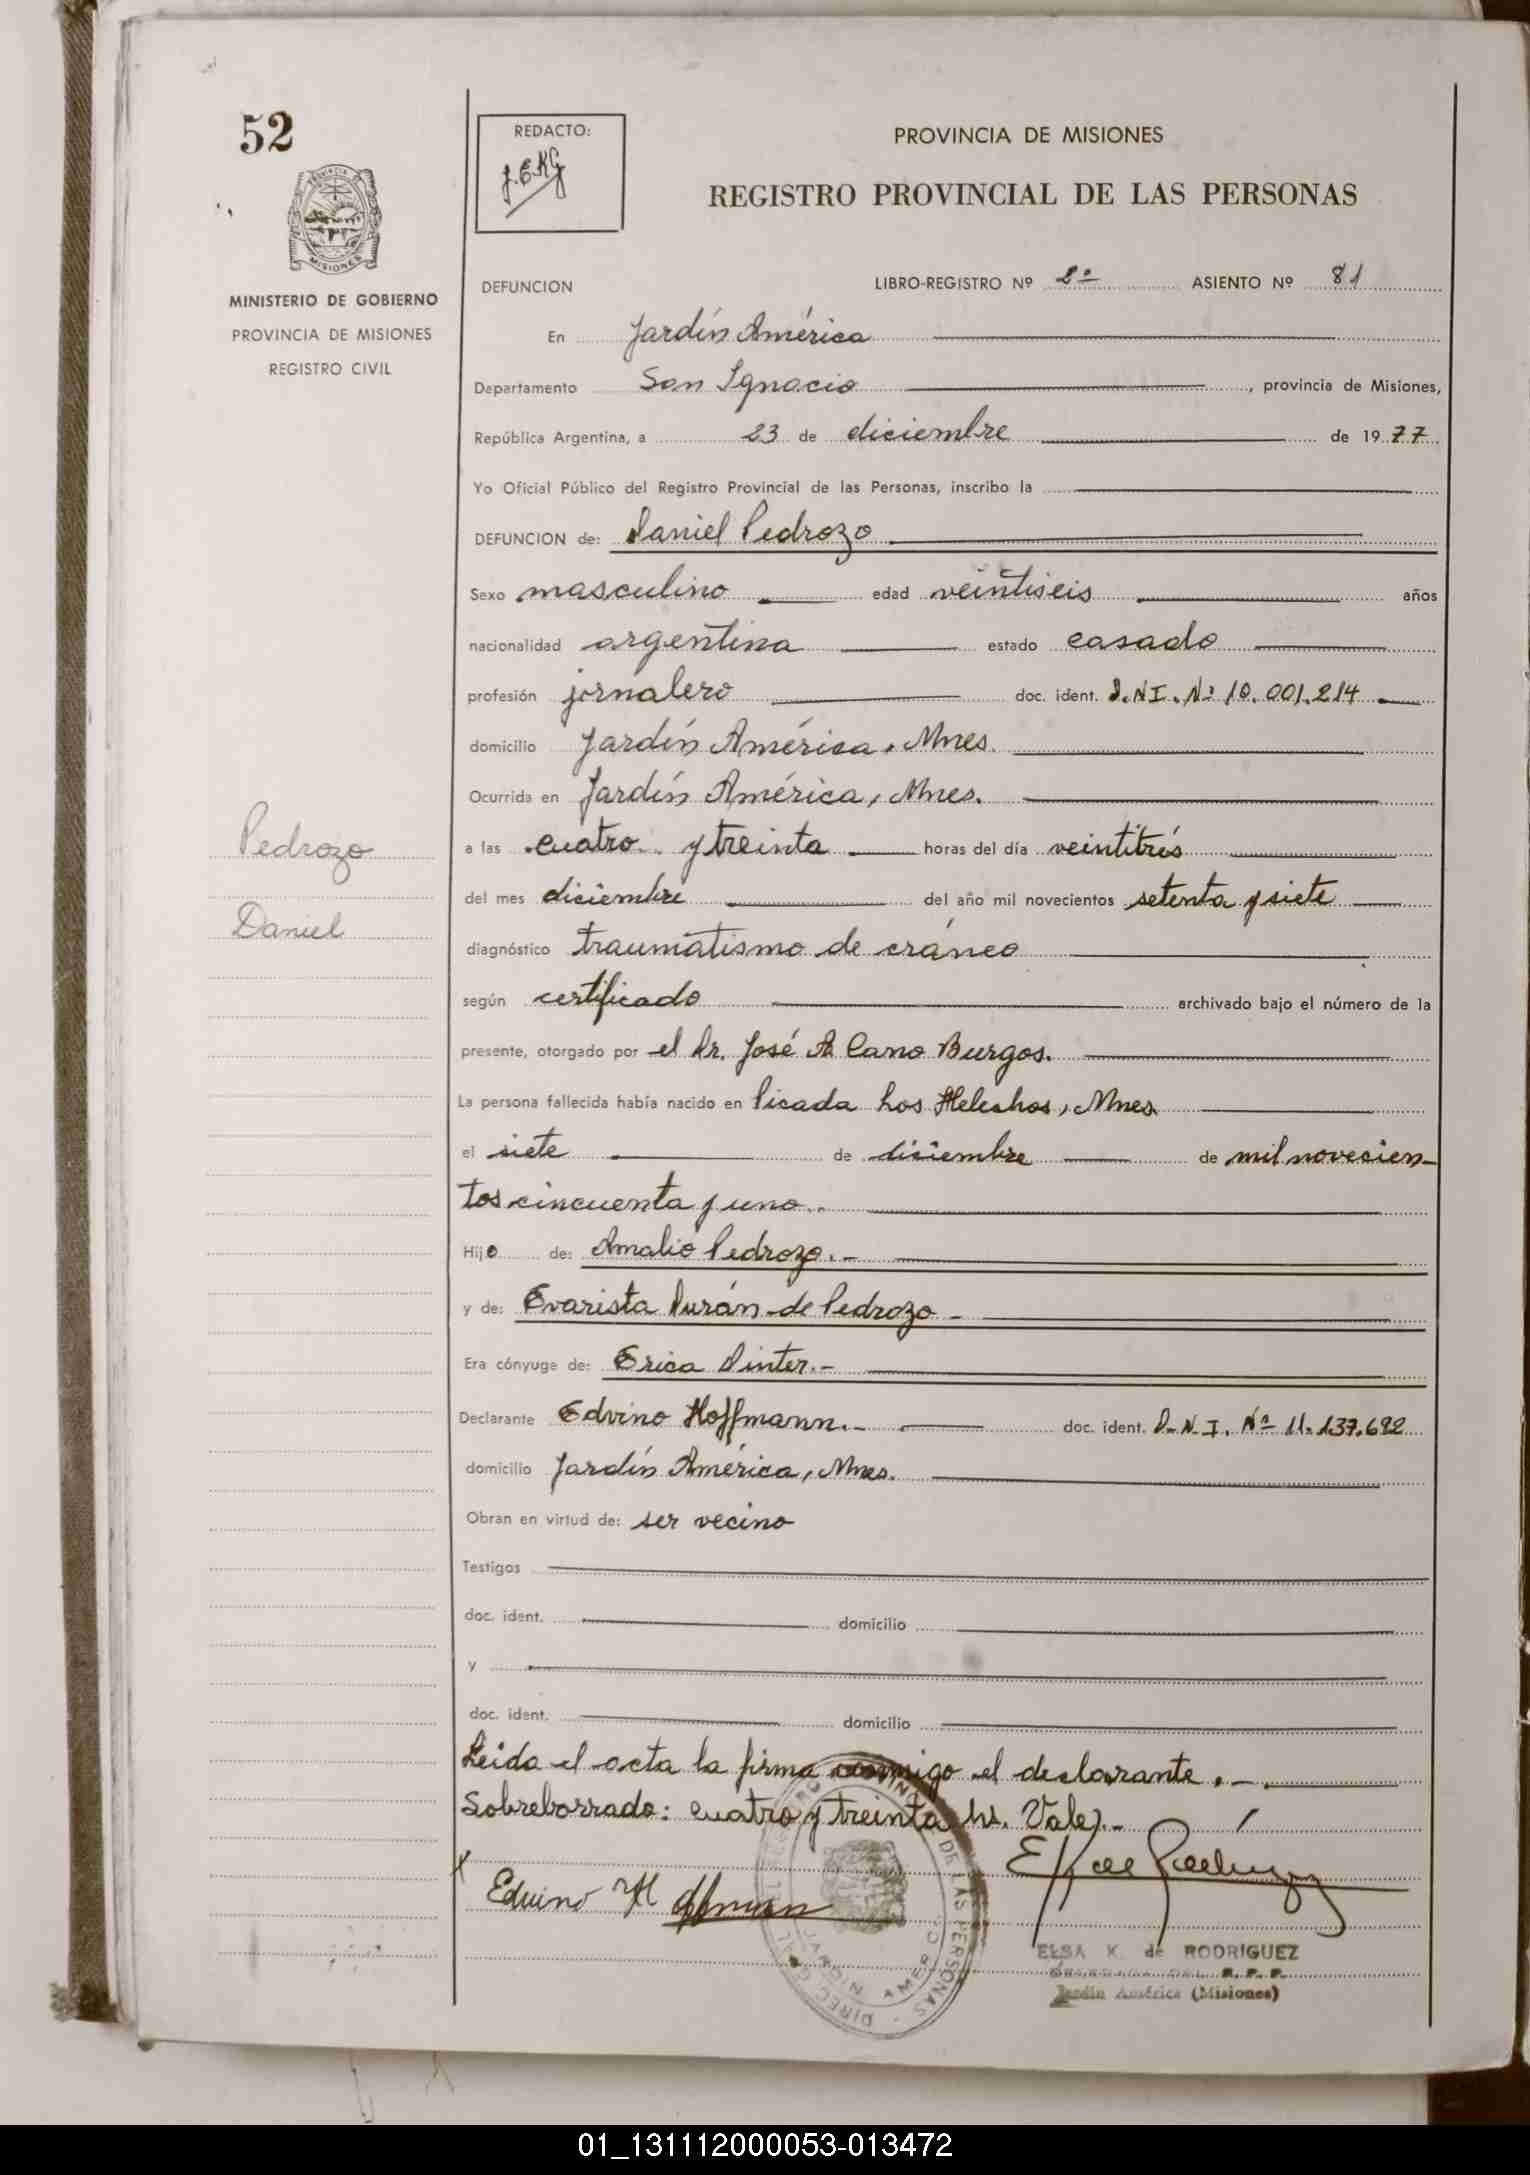 52
REDACTO:
J.E.K.G
PROVINCIA DE MISIONES
REGISTRO PROVINCIAL DE LAS PERSONAS
PROVINCIA DE
MISIONES
MINISTERIO DE GOBIERNO
PROVINCIA DE MISIONES
REGISTRO CIVIL
DEFUNCION LIBRO-REGISTRO Nº 2º ASIENTO Nº 81
En Jardín América
Departamento San Ignacio, provincia de Misiones,
República Argentina, a 23 de diciembre de 1977
Yo Oficial Público del Registro Provincial de las Personas, inscribo la
DEFUNCION de: Daniel Pedrozo
Sexo masculino edad veintiseis años
nacionalidad argentina estado casado
profesión jornalero doc. ident. D.N.I. Nº 10.001.214
domicilio Jardín América, Mnes.
Ocurrida en Jardín América, Mnes.
a las cuatro y treinta horas del día veintitrés
del mes diciembre del año mil novecientos setenta y siete
diagnóstico traumatismo de cráneo
según certificado archivado bajo el número de la
presente, otorgado por el Dr. José A. Cano Burgos.
La persona fallecida había nacido en Picada Los Helechos, Mnes
el siete de diciembre de mil novecien-
tos cincuenta y uno.
Hijo de: Amalio Pedrozo.-
y de: Evarista Durán de Pedrozo -
Era cónyuge de: Erica Dinter.-
Declarante Edvino Hoffmann.- doc. ident. D.N.I. Nº 11.137.692
domicilio Jardín América, Mnes.
Obran en virtud de: ser vecino
Testigos
doc. ident. domicilio
y
doc. ident. domicilio
Leida el acta la firma conmigo el declarante.-
Sobreborrado: cuatro y treinta hs. Vale).-
Pedrozo
Daniel
Edvino Hoffmann
JARDIN AMERICA
ELSA K. de RODRIGUEZ
R.P.P.
Jardín América (Misiones)
01_131112000053-013472